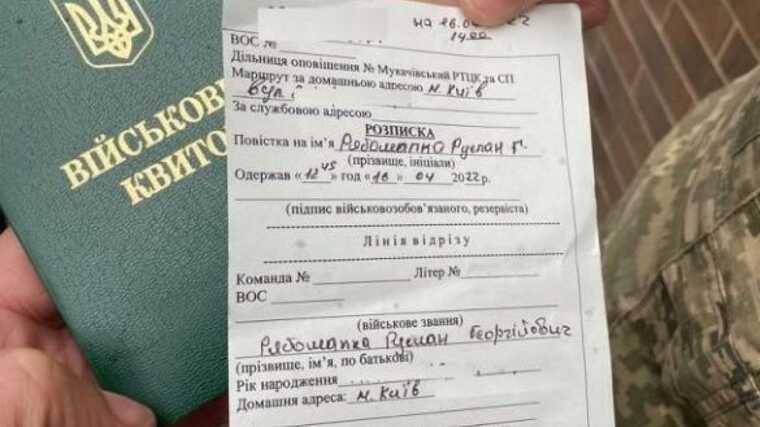 ВІЙСЬКОВ
КВИТО
на 16.0
14 00
ВОС №
Дільниця оповіщення № Мукачівський РТЦК та СП
Маршрут за домашньою адресою м. Київ
вул
За службовою адресою
РОЗПИСКА
Повістка на ім'я Рябошапка Руслан Г.
(прізвище, ініціали)
Одержав «12 45» год «16» 04 2022р.
(підпис військовозобов'язаного, резервіста)
Лінія відрізу
Команда № Літер №
ВОС
(військове звання)
Рябошапка Руслан Георгійович
(прізвище, ім'я, по батькові)
Рік народження
Домашня адреса: м. Київ